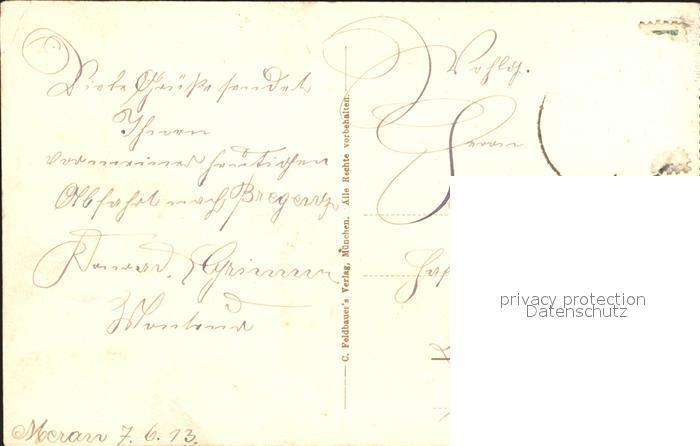 Viele Grüße sendet
Ihnen
vor meiner heutigen
Abfahrt nach Bregenz
Konrad
Meran 7. 6. 13.
C. Feldbauer's Verlag, München. Alle Rechte vorbehalten.
Wohlg.
Herrn
privacy protection
Datenschutz